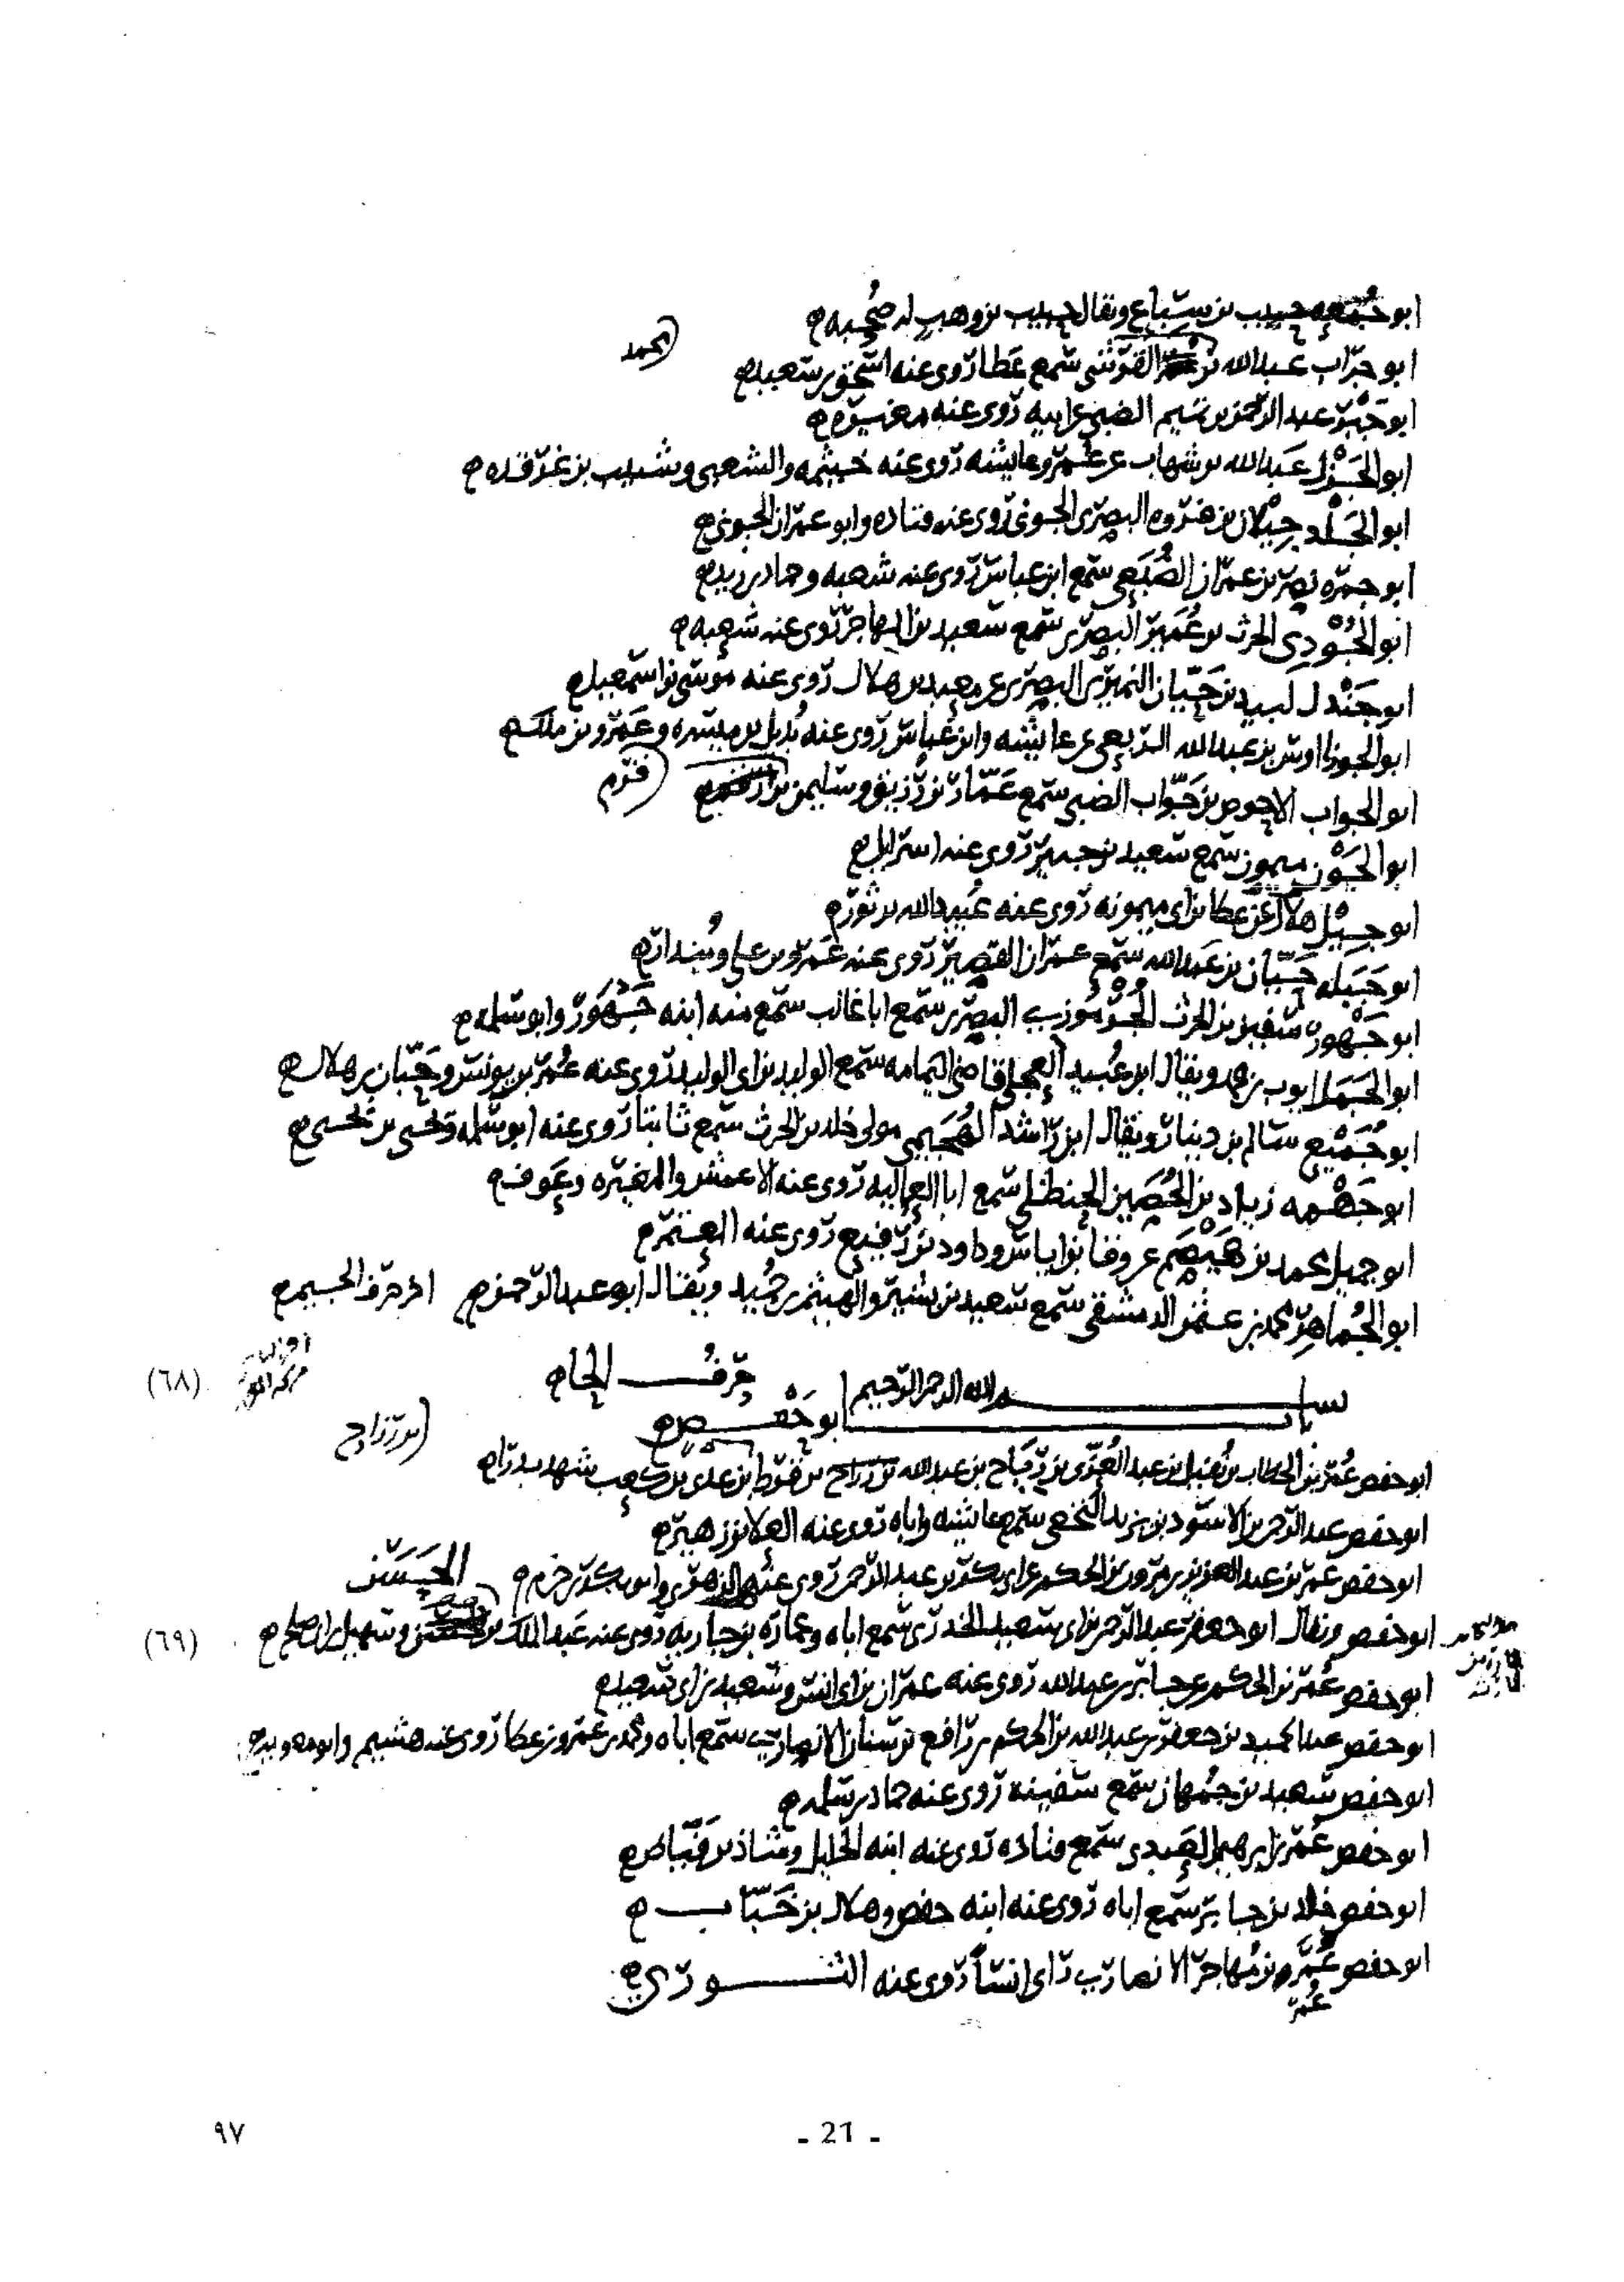 ابو جمعه حبيب بن سباع ويقال حبيب بن وهب له صحبه
ابو جراب عبدالله بن القرشي سمع عطا روى عنه اسحق بن سعيد
محمد
عبد الرحمن بن الضبي عن ابيه روى عنه مغيره
ابو الجزل عبدالله بن شهاب عن عمر وعايشه روى عنه خيثمه والشعبي وشبيب بن غرقده
ابو الجلد جيلان بن فروه البصري الجوني روى عنه قتاده وابو عمران الجوني
ابو جمره نصر بن عمران الضبعي سمع ابن عباس روى عنه شعبه وحماد بن زيد
ابو الجودي الحرث بن عمير البصري سمع سعيد بن المهاجر روى عنه شعبه
ابو جندل لبيد بن حيان النميري البصري عن معبد بن هلال روى عنه موسى بن اسمعيل
ابو الجوزا اوس بن عبدالله الربعي عن عايشه وابن عباس روى عنه بديل بن ميسره وعمرو بن ملك
ابو الجواب الاحوص بن جواب الضبي سمع عمار بن رزيق وسليمن بن
قرم
ابو الجون ميمون سمع سعيد بن جبير روى عنه اسرايل
ابو هلال عن عطا بن ابي ميمونه روى عنه عبيدالله بن ثور
ابو جبله حيان بن عبدالله سمع عمران القصير روى عنه عمرو بن علي وبندار
ابو جهور سفين بن الحرث البصري سمع ابا غالب سمع منه ابنه جهور وابو سلمه
ابو الجمل ايوب بن محمد ويقال ابن عبيد العجلي قاضي اليمامه سمع الوليد بن ابي الوليد روى عنه عمر بن يونس وحبان بن هلال
ابو جميع سالم بن دينار ويقال ابن راشد الهجيمي مولى خلد بن الحرث سمع ثابتا روى عنه ابو سلمه ويحيى بن يحيى
ابو جهمه زياد بن الحصين الحنظلي سمع ابا العاليه روى عنه الاعمش والمغيره وعوف
ابو جميل محمد بن هيصم عروفا بن اياس وداود بن رفيع روى عنه المعتمر
ابو الجماهر محمد بن عثمن الدمشقي سمع سعيد بن بشير والهيثم بن حميد ويقال ابو عبد الرحمن اخر حرف الجيم
(٦٨)
بسم الله الرحمن الرحيم حرف الحا
باب ابو حفص
ابو حفص عمر بن الخطاب بن نفيل بن عبد العزى بن رياح بن عبدالله بن رزاح بن قرط بن عدي بن كعب شهد بدرا
بن رزاح
ابو حفص عبد الرحمن بن الاسود بن يزيد النخعي سمع عايشه واباه روى عنه العلا بن زهير
ابو حفص عمر بن عبد العزيز بن مرون بن الحكم عن ابي بكر بن عبد الرحمن روى عنه الزهري وابو بكر بن حزم
الحسن
ابو حفص ويقال ابو جعفر عبد الرحمن بن ابي سعيد الخدري سمع اباه وعماره بن جاريه روى عنه عبد الملك بن وسهيل بن ابي صلح
(٦٩)
ابو حفص عمر بن الحكم عن جابر بن عبدالله روى عنه عمران بن ابي انس وسعيد بن ابي سعيد
ابو حفص عبد الحميد بن جعفر بن عبدالله بن الحكم بن رافع بن سنان الانصاري سمع اباه ومحمد بن عمرو بن عطا روى عنه هشيم وابو معويه
ابو حفص سعيد بن جمهان سمع سفينه روى عنه حماد بن سلمه
ابو حفص عمر بن ابرهيم العبدي سمع قتاده روى عنه ابنه الخليل وشاذ بن فياض
ابو حفص خلد بن جابر سمع اباه روى عنه ابنه حفص وهلال بن خباب
ابو حفص عمره بن مهاجر الانصاري راى انسا روى عنه الثوري
عمر
- 21 -
٩٧